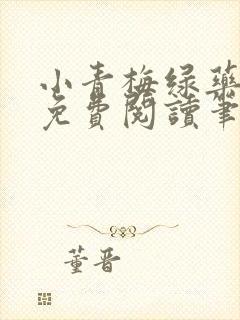 小青梅绿药
免費閱讀筆
董晋